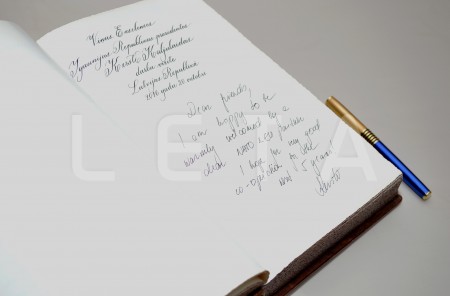 Viņas Ekselences
Igaunijas Republikas prezidentes
Kersti Kaljulaidas
darba vizīte
Latvijas Republikā
2016. gada 20. oktobris
Dear friends,
I am happy to be
warmly welcomed by a
close
I hope for very good
co-operation to
next 5 years!
LETA